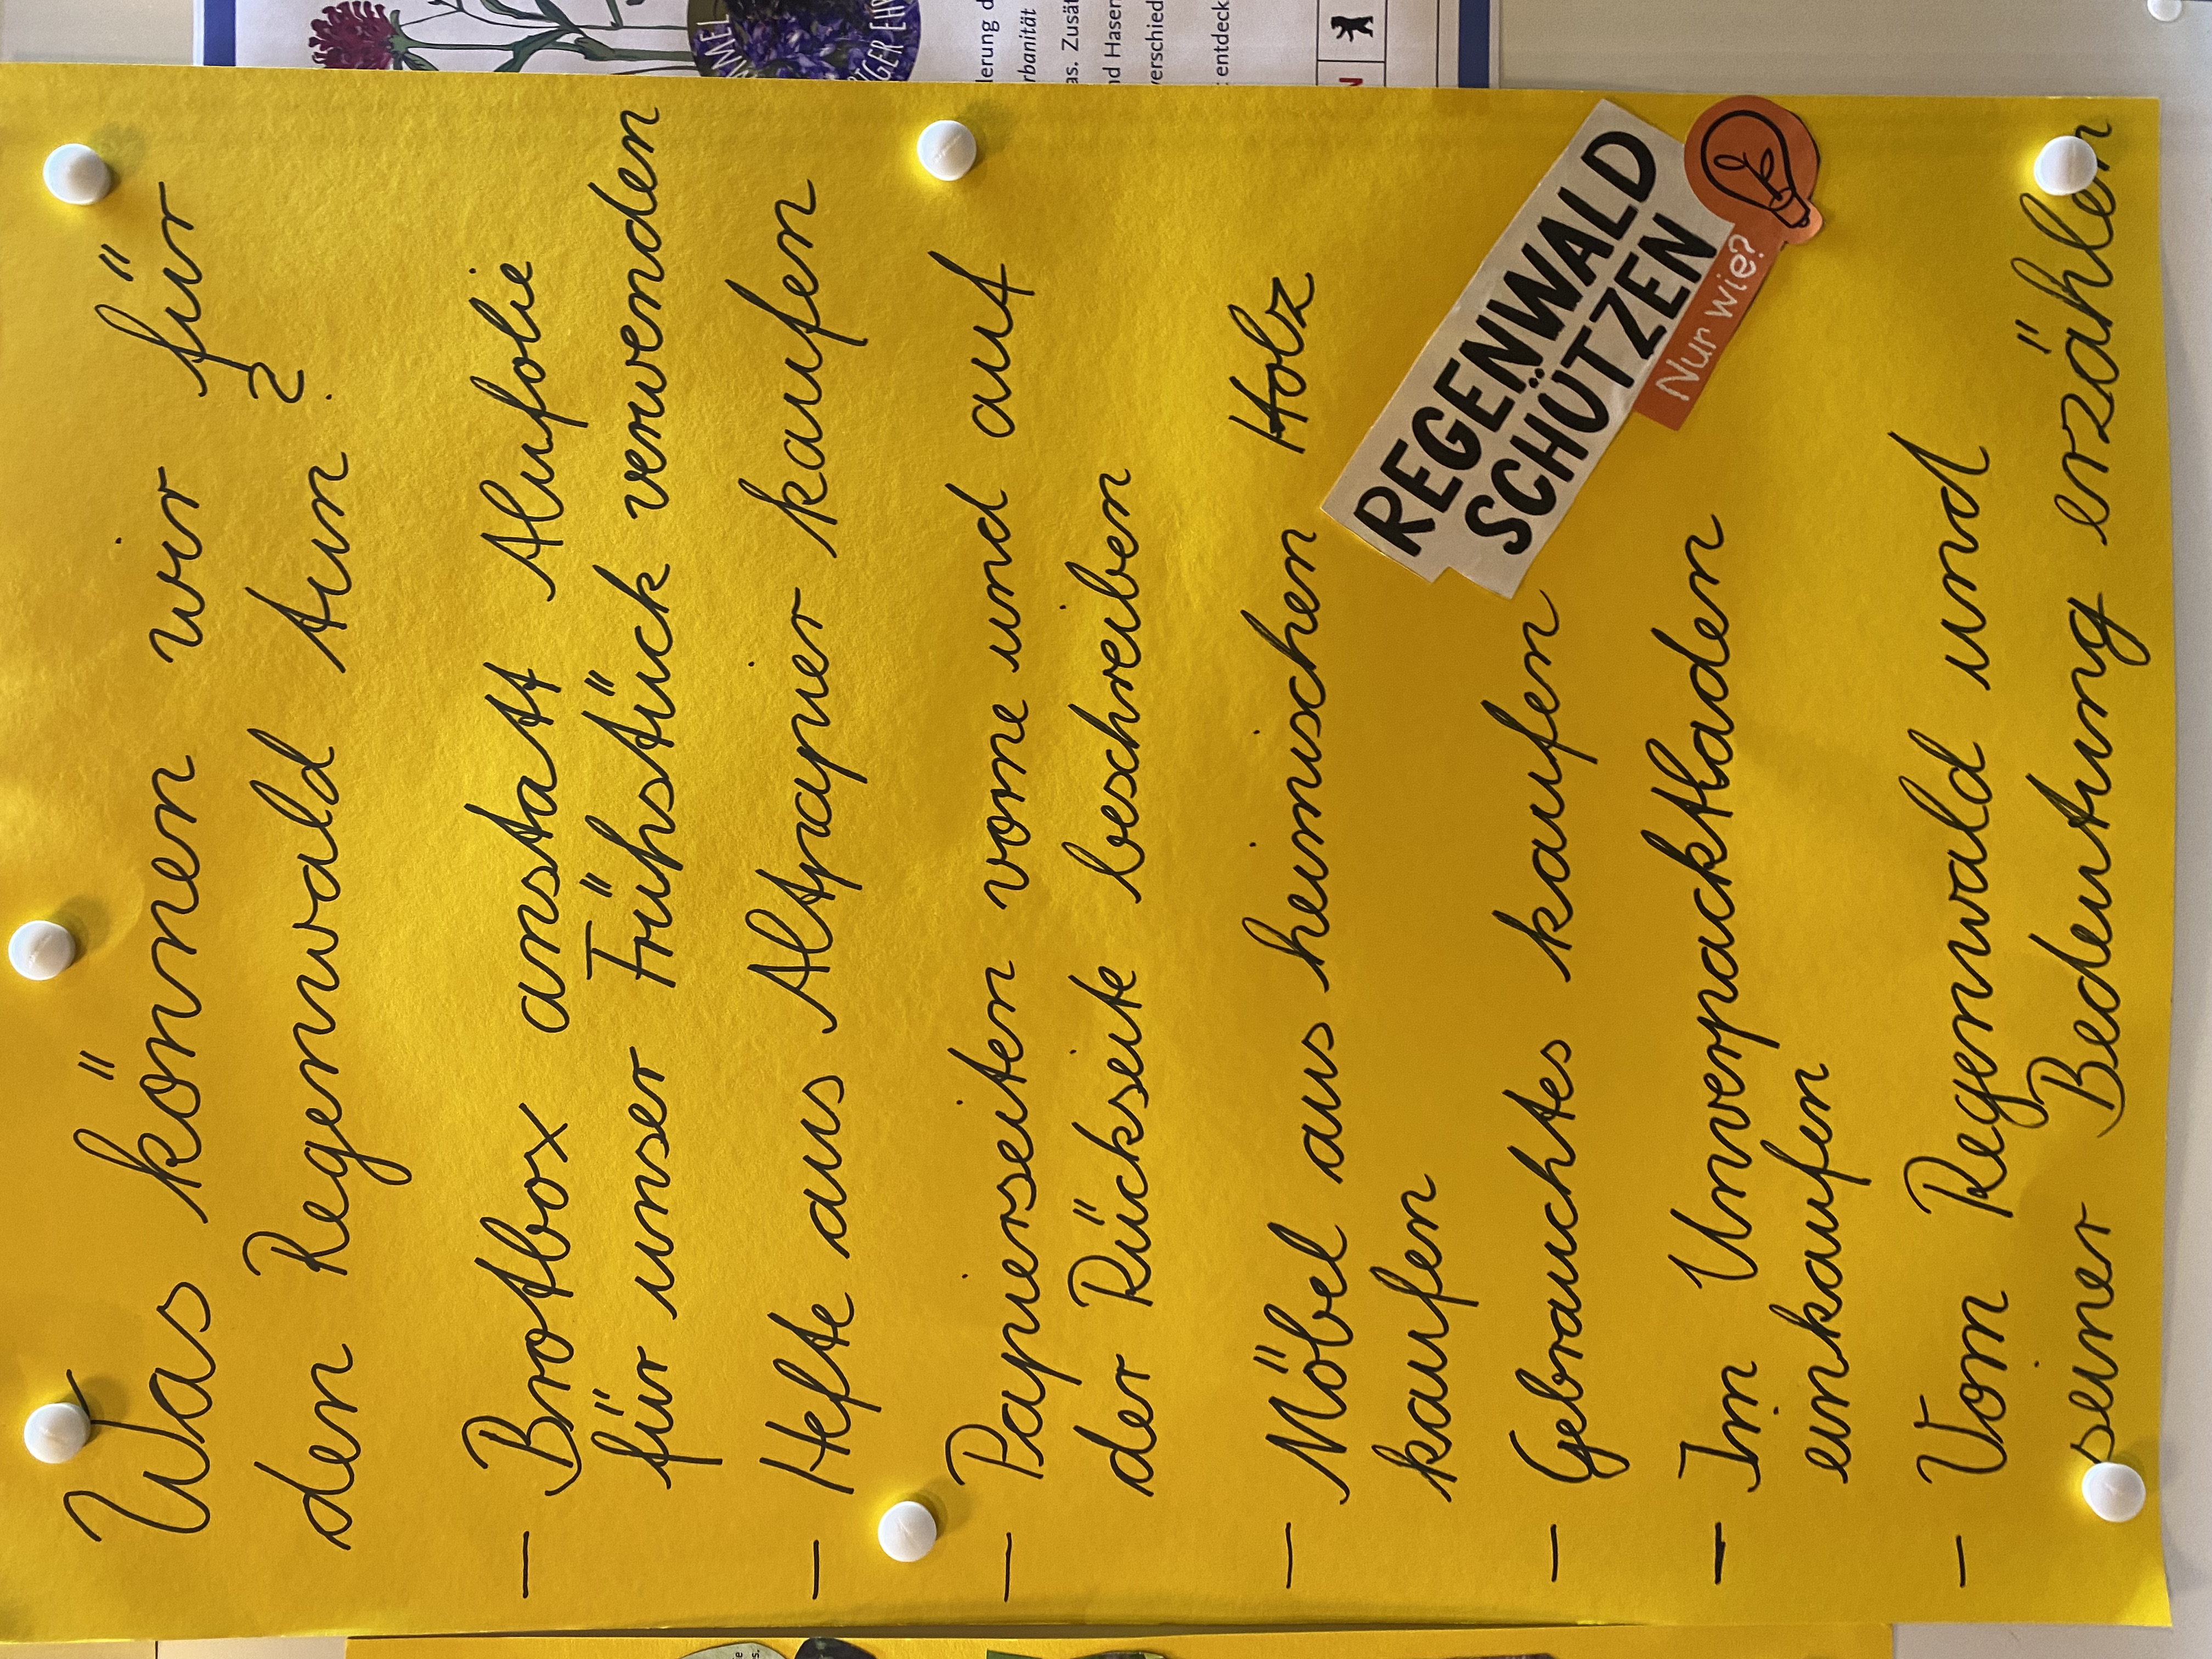 Was können wir für
den Regenwald tun?
– Brotbox anstatt Alufolie
für unser Frühstück verwenden
– Hefte aus Altpapier kaufen
– Papierseiten vorne und auf
der Rückseite beschreiben
– Möbel aus heimischen Holz
kaufen
– Gebrauchtes kaufen
– Im Unverpacktladen
einkaufen
– Vom Regenwald und
seiner Bedeutung erzählen
REGENWALD
SCHÜTZEN
Nur wie?
derung d
rbanität
as. Zusät
nd Hasen
verschied
entdeck